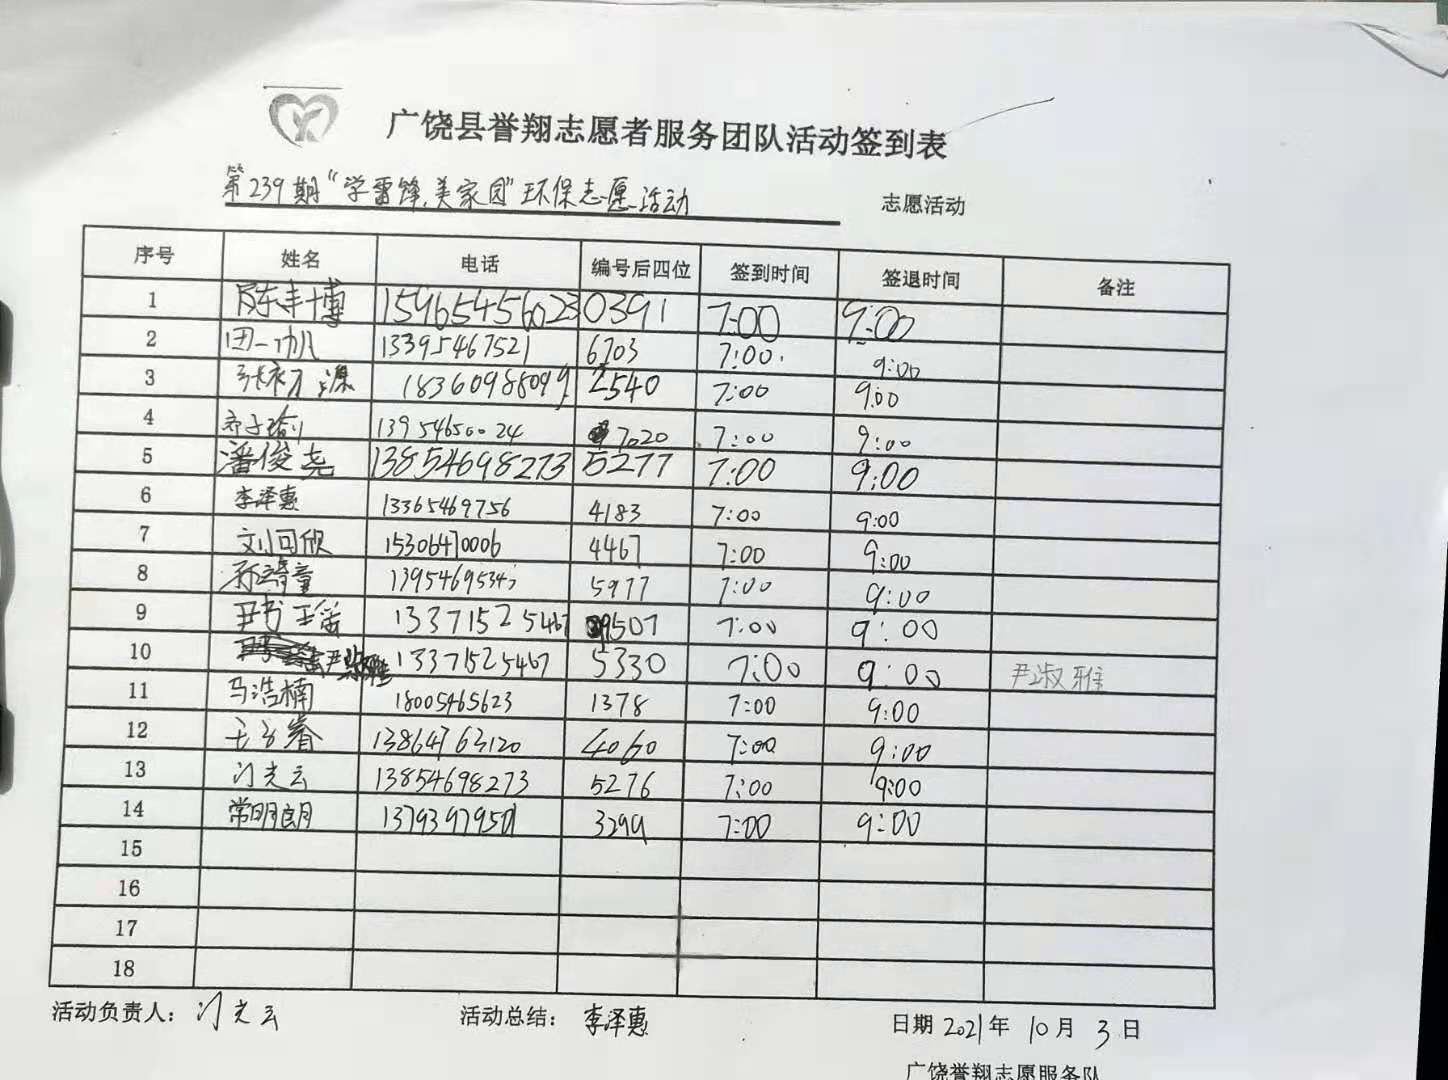 广饶县誉翔志愿者服务团队活动签到表
第239期"学雷锋,美家园"环保志愿活动 志愿活动
序号 姓名 电话 编号后四位 签到时间 签退时间 备注
1 陈丰博 15965456023 0391 7:00 9:00
2 田一帆 13395467521 6703 7:00 9:00
3 18360988099 2540 7:00 9:00
4 子瑜 13954650024 7020 7:00 9:00
5 潘俊尧 13854698273 5277 7:00 9:00
6 李泽惠 13365469756 4183 7:00 9:00
7 刘可欣 15306470006 4467 7:00 9:00
8 5977 7:00 9:00
9 尹书瑶 13371525467 9507 7:00 9:00
10 尹淑雅 13371525467 5330 7:00 9:00 尹淑雅
11 马浩楠 18005465623 1378 7:00 9:00
12 13864763120 4060 7:00 9:00
13 门光云 13854698273 5276 7:00 9:00
14 常明朗 13793979501 3299 7:00 9:00
15
16
17
18
活动负责人: 门光云 活动总结: 李泽惠 日期 2021年 10月 3日
广饶誉翔志愿服务队